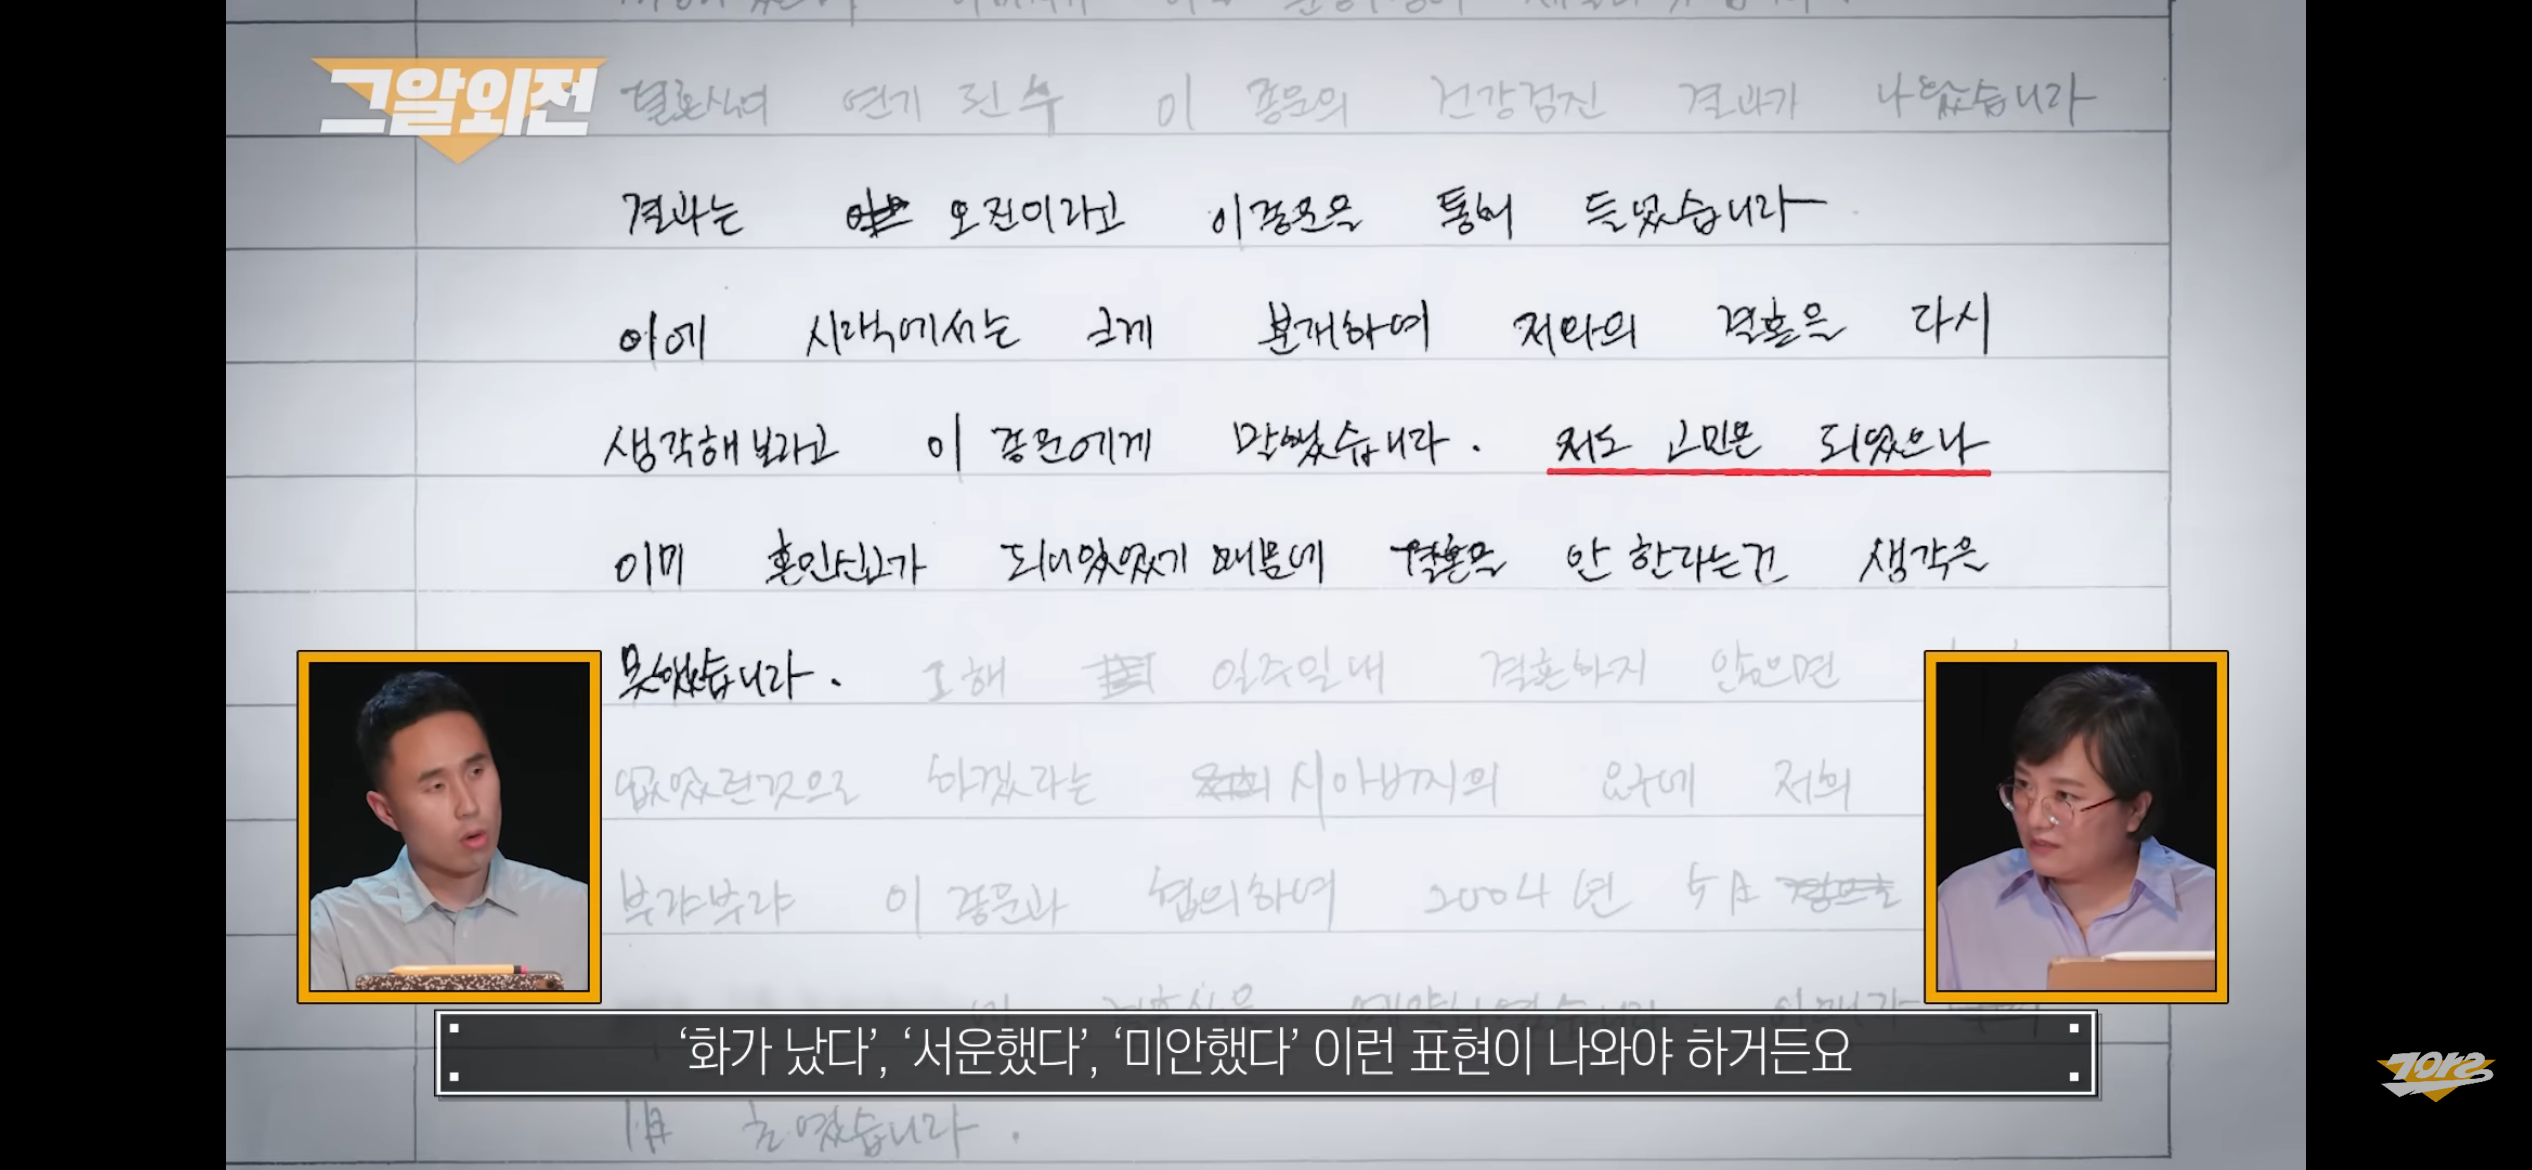 그알외전
연기 된 수 이 종문의 건강검진 결과가 나왔습니다
결과는 오진이라고 이종문을 통해 들었습니다
이에 시댁에서는 크게 분개하여 저와의 결혼을 다시
생각해보라고 이 종문에게 말했습니다. 저도 고민은 되었으나
이미 혼인신고가 되어있었기 때문에 결혼을 안 한다는건 생각은
못했습니다. 그해 일주일내 결혼하지 않으면
없었던것으로 하겠다는 시아버지의 요구에 저희
부랴부랴 이 종문과 협의하여 2004년 5월
‘화가 났다’, ‘서운했다’, ‘미안했다’ 이런 표현이 나와야 하거든요
그알